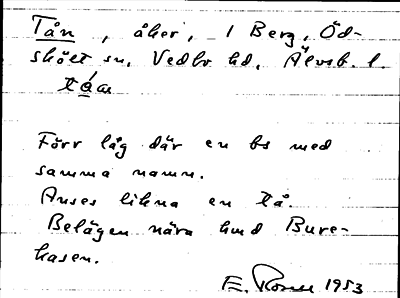 Tån, åker, i Berg, Öd-
skölt sn, Vedbo hd, Älvsb. l.
tåa
Förr låg där en bs med
samma namn.
Anses likna en tå.
Belägen nära hmd Bure-
kasen.
E. 1953